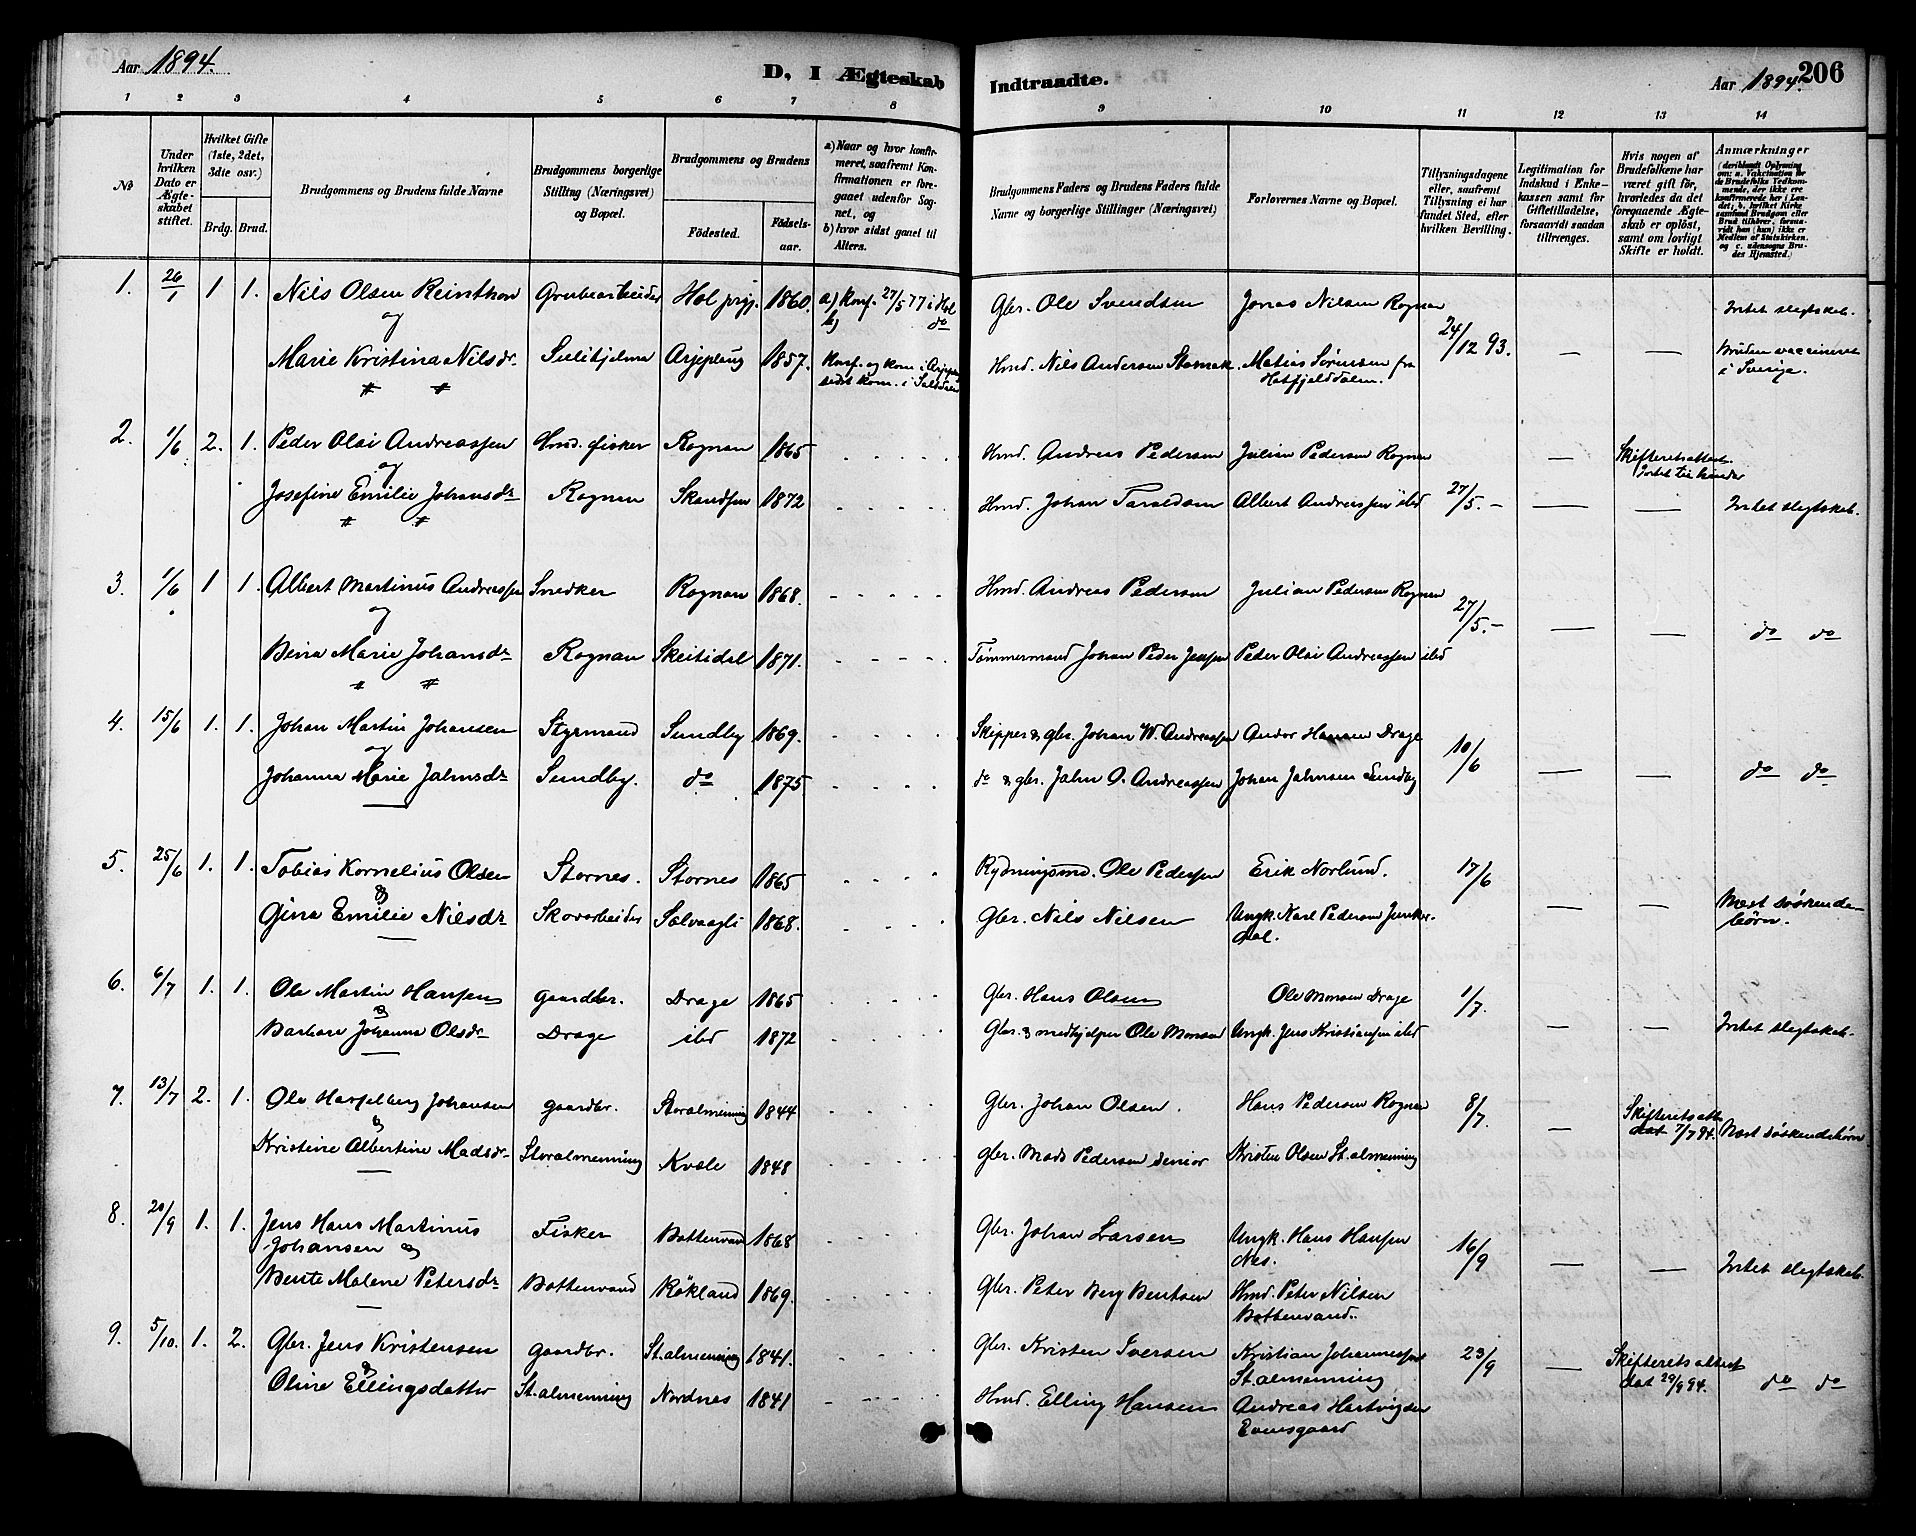 Aar 1894.
D, I Ægteskab
Indtraadte.
Aar 1894.
206
1 2 3 4 5 6 7 8 9 10 11 12 13 14
№
Under hvilken Dato er Ægteskabet stiftet.
Hvilket Gifte (1ste, 2det, 3die osv.)
Brdg. Brud.
Brudgommens og Brudens fulde Navne
Brudgommens borgerlige Stilling (Næringsvei) og Bopæl.
Brudgommens og Brudens
Fødested.
Fødselsaar.
a) Naar og hvor konfirmeret, saafremt Konfirmationen er foregaaet udenfor Sognet, og
b) hvor sidst gaaet til Alters.
Brudgommens Faders og Brudens Faders fulde Navne og borgerlige Stillinger (Næringsvei)
Forlovernes Navne og Bopæl.
Tillysningsdagene eller, saafremt Tillysning ei har fundet Sted, efter hvilken Bevilling.
Legitimation for Indskud i Enkekassen samt for Giftetilladelse, forsaavidt saadan tiltrænges.
Hvis nogen af Brudefolkene har været gift før, hvorledes da det foregaaende Ægteskab er opløst, samt om lovligt Skifte er holdt.
Anmærkninger (deriblandt Oplysning om: a. Vakcination for de Brudefolks Vedkommende, der ikke ere konfirmerede her i Landet; b. hvilket Kirkesamfund Brudgom eller Brud tilhører, forsaavidt han (hun) ikke er Medlem af Statskirken, og c. udensogns Brudes Hjemsted.)
1. 26/1 1 1. Nils Olsen Reinthon Grubearbeider Hol prgj. 1860. a) Konf. 27/5 77 i Hol b) do Gbr. Ole Svendsen Jonas Nilsen Rognan 24/12 93. Intet slegtskab.
og
Marie Kristina Nilsdr Sulitjelma Arjeplaug 1857. Konf. og kom. i Arjepl. sidst kom. i Saltdalen Hmd. Nils Andersen Matias Sørensen fra Hatfjelddalen. — — Bruden vaccineret i Sverige.
2. 1/6 2. 1. Peder Olai Andreassen Hmd. fisker Rognan 1865 Hmd. Andreas Pedersen Julian Pedersen Rognan — Skifteretsattest Intet til hinder
og
Josefine Emilie Johansdr Rognan Skandsen 1872 Hmd. Johan Taraldsen Albert Andreassen ibd 27/5.- — — Intet slegtskab.
3. 1/6 1 1. Albert Martinus Andreassen Snedker Rognan 1868. Hmd. Andreas Pedersen Julian Pedersen Rognan 27/5.-
og
Bina Marie Johansdr Rognan Skeitidal 1871. Tømmermand Johan Peder Jensen Peder Olai Andreassen ibd — — do do
4. 15/6 1. 1. Johan Martin Johansen Styrmand Sundby 1869. Skipper & gbr. Johan W. Andreassen Andor Hansen Drage 10/6
og
Johanna Marie Jalmsdr Sundby. do 1875 do & gbr. Jalm O. Andreassen Johan Jalmsen Sundby — — do do
5. 25/6 1. 1. Tobias Kornelius Olsen Stornes. Stornes 1865 Rydningsmd. Ole Pedersen Erik Norlund. 17/6
&
Gina Emilie Nilsdr Skovarbeider Sølvaagli 1868. Gbr. Nils Nilsen Ungk. Karl Pedersen — — Næst søskendebørn.
6. 6/7 1. 1. Ole Martin Hansen gaardbr. Drage 1865 Gbr. Hans Olsen Ole Monsen Drage 1/7.
&
Barbara Johanna Olsdr Drage ibd 1872 Gbr. & medhjelper Ole Monsen Ungk. Jens Kristiansen ibd — — Intet slegtskab.
7. 13/7 2. 1. Ole Hasselberg Johansen gaardbr. Storalmenning 1844 Gbr. Johan Olsen. Hans Pedersen Rognan 8/7. — Skifteretsatt. dat 7/7 94. Næst søskendebørn
&
Kristine Albertine Madsdr Storalmenning Kvæle 1848 gbr. Mads Pedersen senior Kristen Olsen St. almenning
8. 20/9 1. 1. Jens Hans Martinus Johansen & Fisker Bottenvand 1868 Gbr. Johan Larsen Ungk. Hans Hansen Nes. 16/9
Bente Malene Petersdr Bottenvand Røkland 1869. Gbr. Peter Berg Bentsen Hmd. Peter Nilsen Bottenvand. — — Intet slegtskab.
9. 5/10. 1. 2. Gbr. Jens Kristensen gaardbr. St. almenning 1841. Gbr. Kristen Iversen Kristian Johannessen St. almenning 23/9 — Skifteretsattest dat 29/9 94. do do
&
Oline Ellingsdatter St. almenning Nordnes 1841 Hmd. Elling Hansen Andreas Hartvigsen Evensgaard